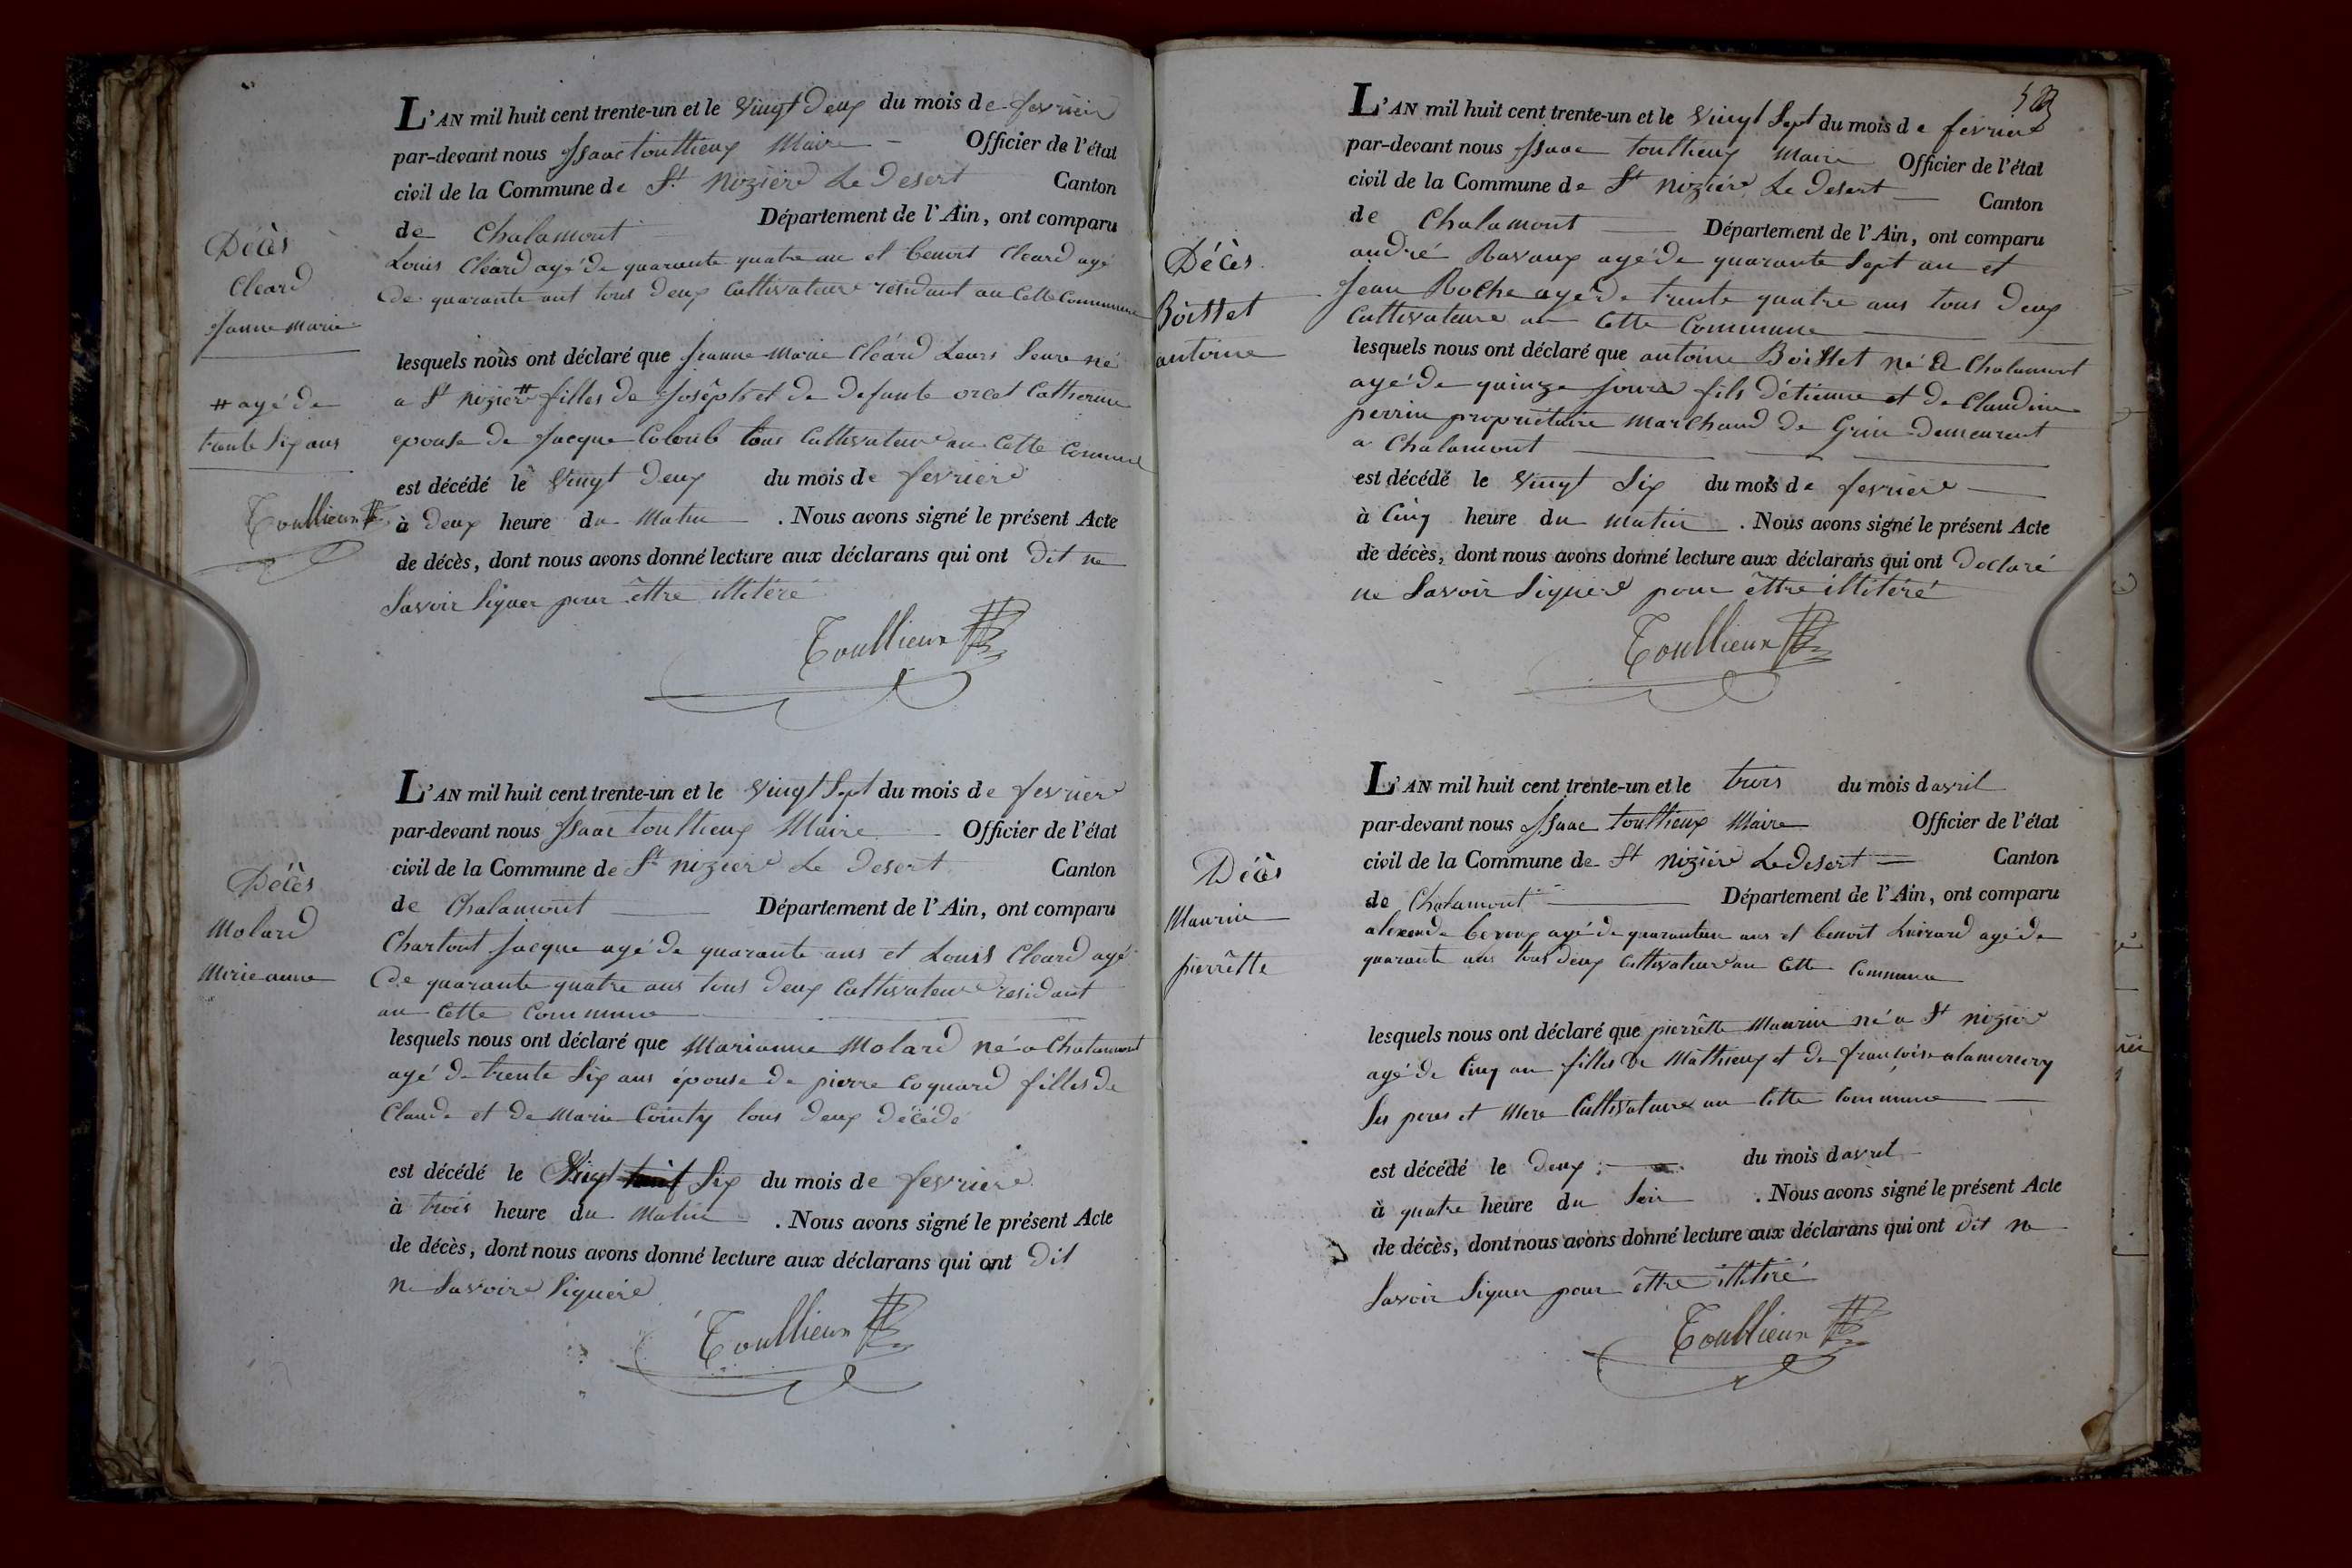 L'AN mil huit cent trente-un et le vingt deux du mois de fevrier
par-devant nous Isaac toullieux Maire Officier de l'état
civil de la Commune de St. Nizière Le Desert Canton
de Chalamont Département de l'Ain, ont comparu
Louis Cléard agé de quarante quatre an et benoit Cleard agé
de quarante ant tous deux Cultivateure résidant an Cette Commune
Décès
Cleard
Jeanne Marie
lesquels nous ont déclaré que Jeanne Marie Cléard Leurs Seure né
a St Nizière # filles de Josèph et de defunte orcet Catherine
# agé de
trante Six ans
epouse de Jacque Coloub tous Cultivateur an Cette Commune
est décédé le vingt deux du mois de fevriere
Toullieux
à deux heure du Matin . Nous avons signé le présent Acte
de décès, dont nous avons donné lecture aux déclarans qui ont Dit ne
Savoir Signer pour êttre illitéré
Toullieux
L'AN mil huit cent trente-un et le vingt Sept du mois de fevrier
par-devant nous Isaac toullieux Maire Officier de l'état
civil de la Commune de St nizière Le Desert Canton
de Chalamont Département de l'Ain, ont comparu
Décès
Molard
Marie anne
Chartout Jacque agé de quarante ans et Louis Cleard agé
de quarante quatre ans tous deux Cultivateure residant
an Cette Commune
lesquels nous ont déclaré que Marianne Molard né a Chalamont
agé de trente Six ans épouse de pierre Coquard filles de
Claude et de Marie Cointy tous deux décédé
est décédé le vingt Six du mois de fevriere
à trois heure du Matin . Nous avons signé le présent Acte
de décès, dont nous avons donné lecture aux déclarans qui ont Dit
ne Savoire Signére
Toullieux
L'AN mil huit cent trente-un et le vingt Sept du mois de fevriere
par-devant nous Isaac toullieux Maire Officier de l'état
civil de la Commune de St nizière Le Desert Canton
de Chalamont Département de l'Ain, ont comparu
andré Ravaux agé de quarante Sept an et
Jean Roche agé de trente quatre ans tous deux
Cultivateure an Cette Commune
Décès
Boisset
antoine
lesquels nous ont déclaré que antoine Boisset né a Chalamont
agé de quinze jours fils d'étienne et de Claudine
perrin propriétaire Marchand de Grin demeurent
a Chalamont
est décédé le vingt Six du mois de fevriere
à Cinq heure du matin . Nous avons signé le présent Acte
de décès, dont nous avons donné lecture aux déclarans qui ont Declaré
ne Savoir Signere pour êttre illitéré
Toullieux
L'AN mil huit cent trente-un et le trois du mois davril
par-devant nous Isaac toullieux Maire Officier de l'état
civil de la Commune de St nizière Le desert Canton
de Chalamont Département de l'Ain, ont comparu
Décès
Maurin
pierrêtte
agé de quarante un ans et benoit agé de
quarante ans tous deux Cultivateur an Cette Commune
lesquels nous ont déclaré que pierrêtte Maurin né a St nizier
agé de Cinq an filles de Mathieux et de françoise alamercery
Ses peres et Mere Cultivateure an Cette Commune
est décédé le deux du mois davril
à quatre heure du Soir . Nous avons signé le présent Acte
de décès, dont nous avons donné lecture aux déclarans qui ont dit ne
Savoir Signer pour êttre illitéré
Toullieux